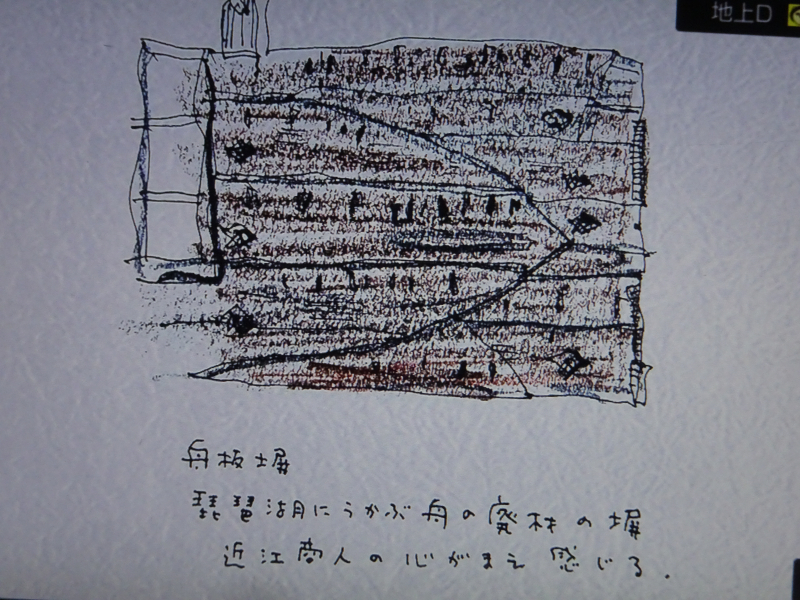 地上D
舟板塀
琵琶湖にうかぶ舟の廃材の塀
近江商人の心がまえ 感じる.